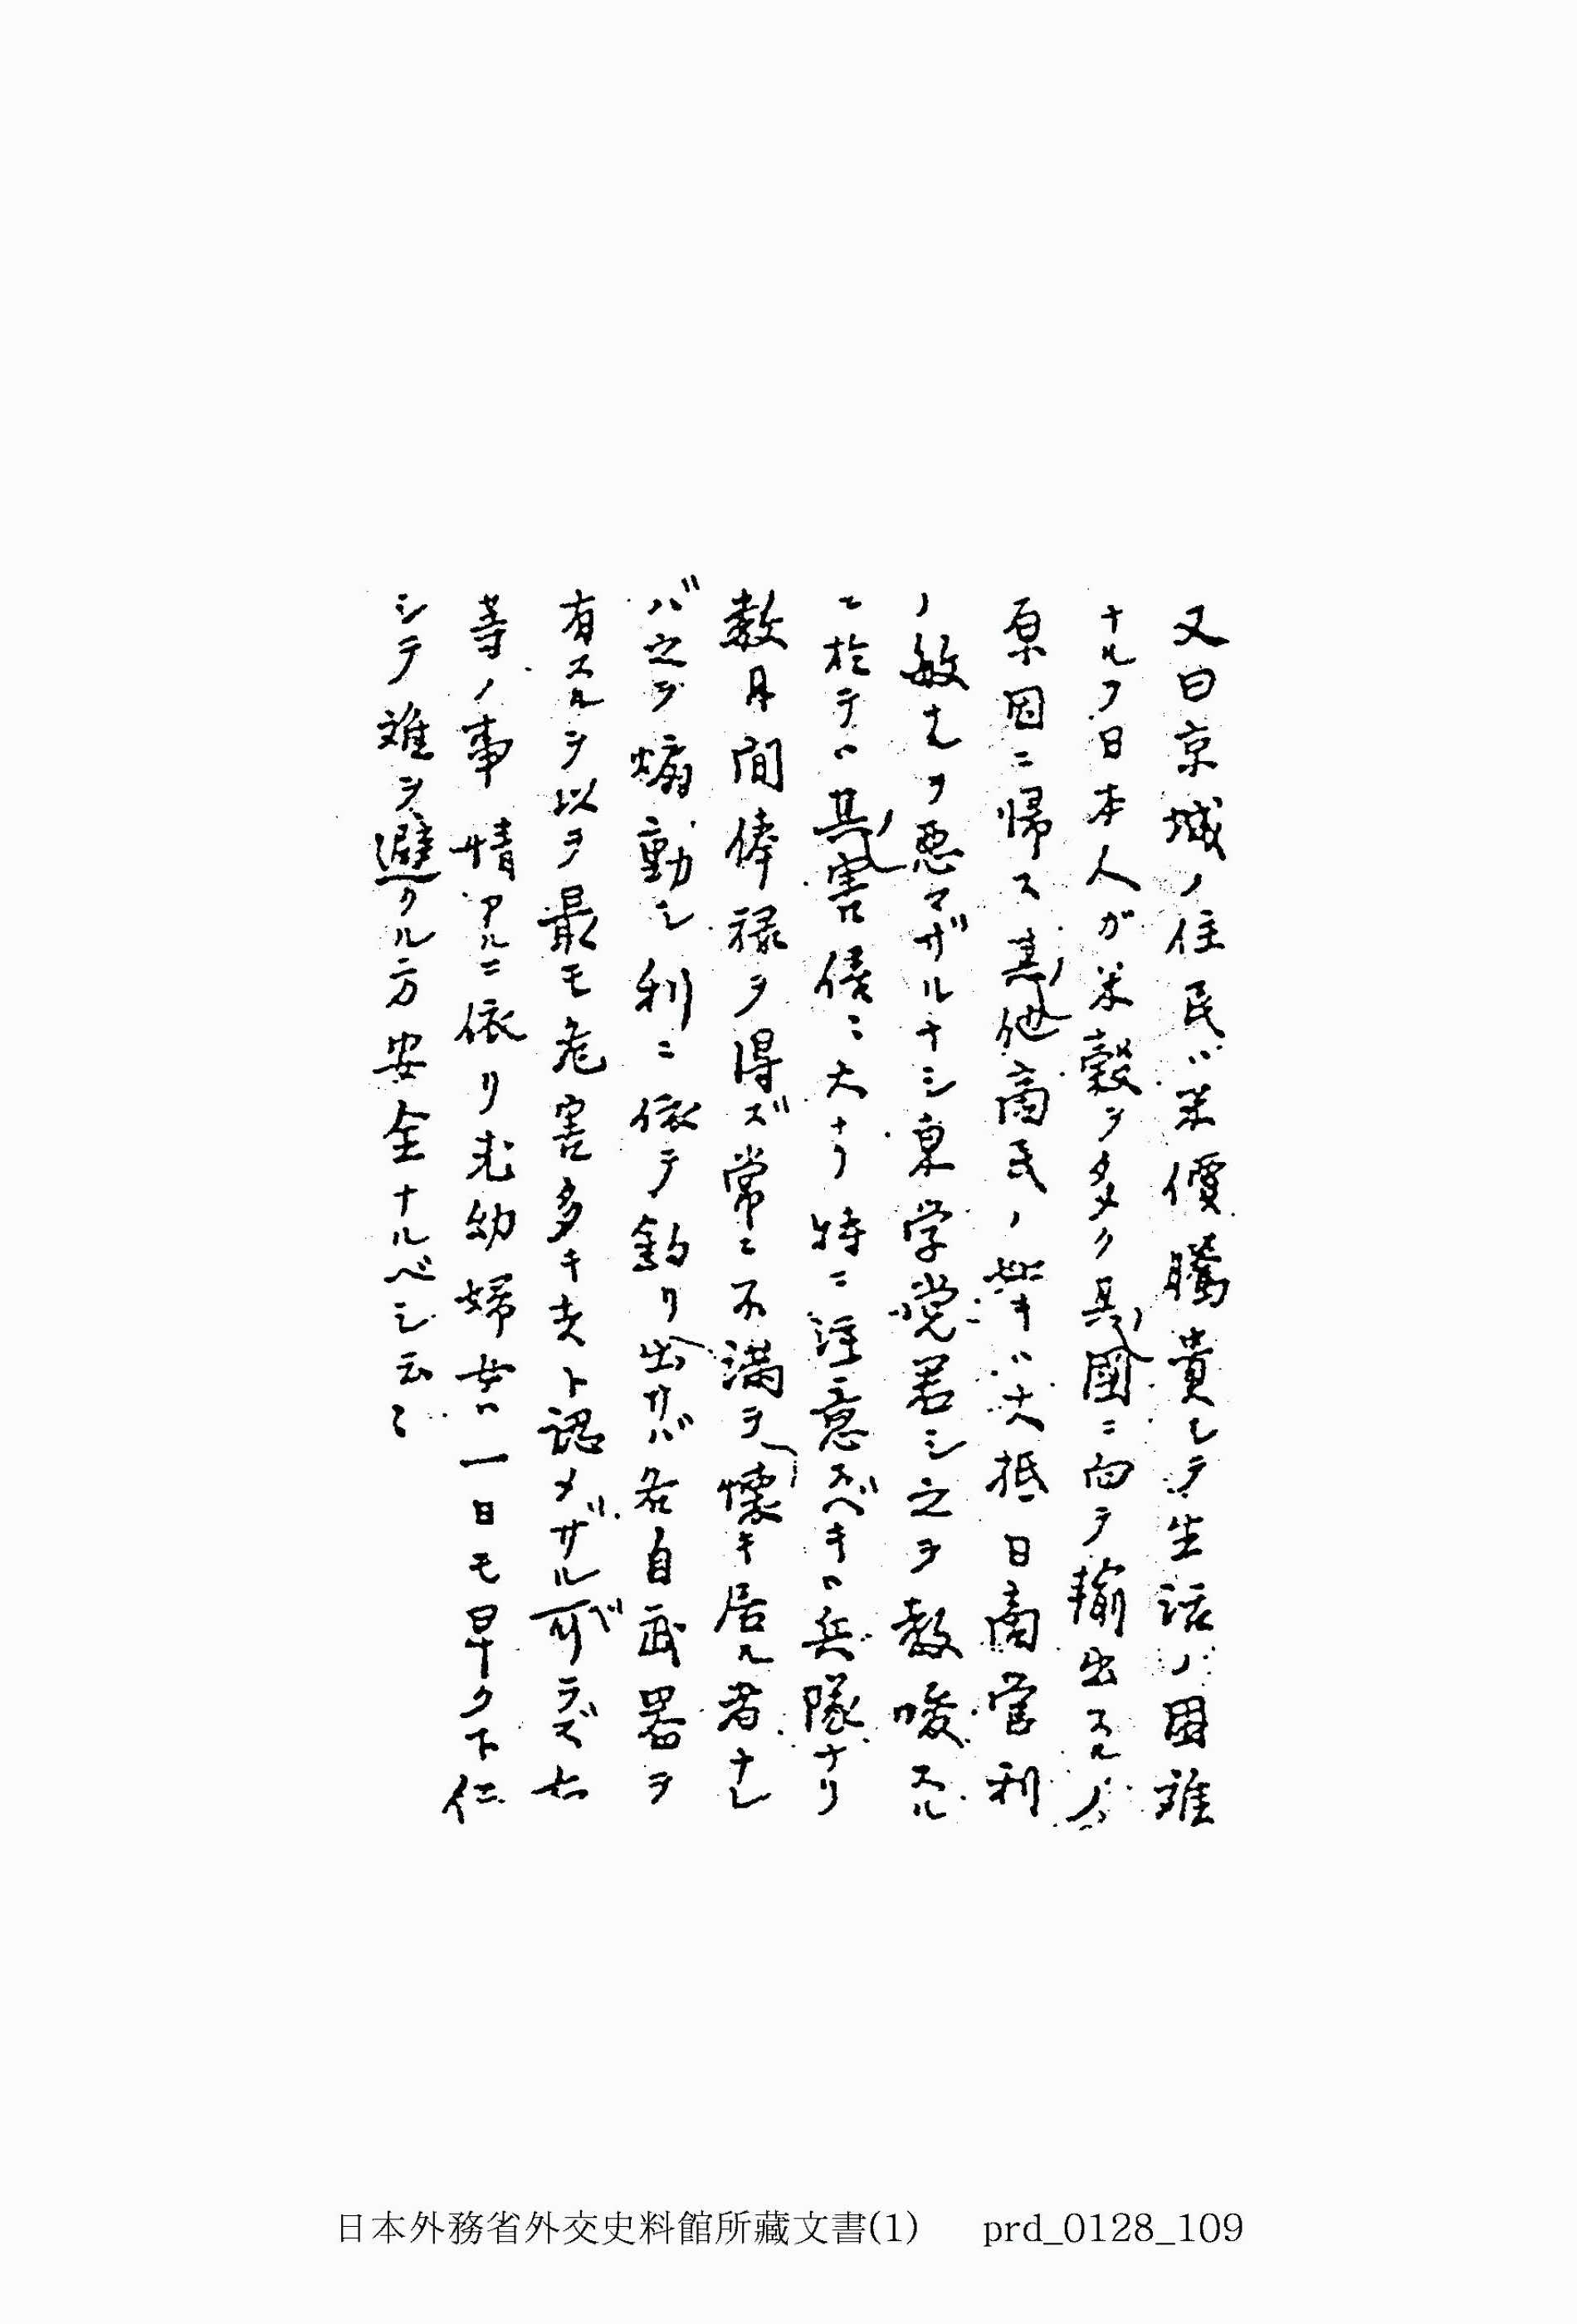 又曰京城ノ住民ハ米價騰貴シテ生活ノ困難
ナルヲ日本人ガ米穀ヲ多ク其國ニ向テ輸出スルノ
原因ニ帰ス其他商民ノ如キハ大抵日商営利
ノ敏ナルヲ悪マザルナシ東学党若シ之ヲ教唆スル
ニ於テハ其害侭ニ大ナリ特ニ注意スベキハ兵隊ナリ
数月間俸禄ヲ得ズ常ニ不満ヲ懐キ居ル者ナレ
バ之ヲ煽動シ利ニ依テ釣リ出サバ各自武器ヲ
有スルヲ以テ最モ危害多キ者ト認メザル可ラズ右
等ノ事情アルニ依リ老幼婦女ハ一日モ早ク下仁
シテ難ヲ避クル方安全ナルベシ云々
日本外務省外交史料館所藏文書(1) prd_0128_109